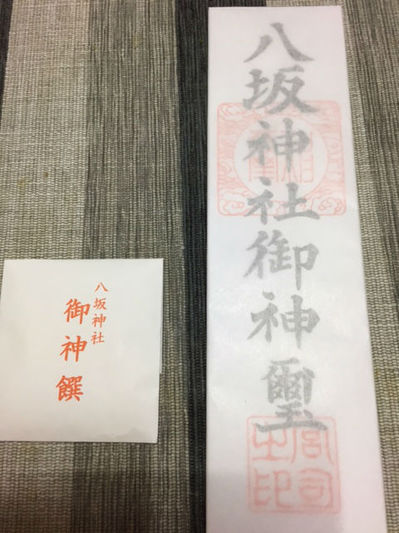 八坂神社御神璽
宮司之印
八坂神社
御神饌